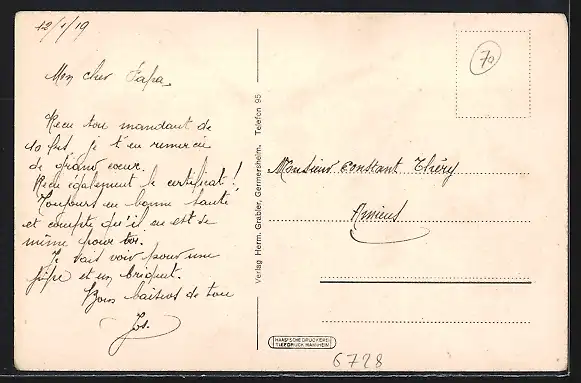 12/1/19
Mon cher Papa
Recu ton mandant de
10 frs, je t'en remercie
de grand cœur.
Recu également le certificat!
Toujours en bonne santé
et compte qu'il en est de
même pour toi.
Je vais voir pour une
pipe et un briquet.
Bons baisers de ton
Jos.
Verlag Herm. Grabler, Germersheim. Telefon 95
70
Monsieur Constant Théry
Amiens
HANS'SCHE DRUCKEREI
TIEFDRUCK MANNHEIM
6728